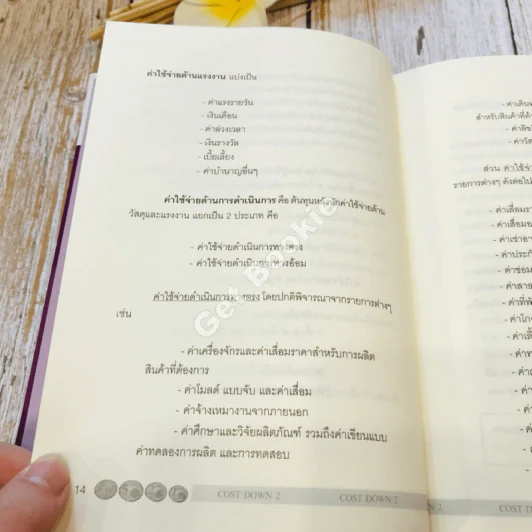 ค่าใช้จ่ายด้านแรงงาน แบ่งเป็น
- ค่าแรงรายวัน
- เงินเดือน
- ค่าล่วงเวลา
- เงินรางวัล
- เบี้ยเลี้ยง
- ค่าบำนาญอื่นๆ
ค่าใช้จ่ายด้านการดำเนินการ คือ ต้นทุนหลังหักค่าใช้จ่ายด้าน
วัสดุและแรงงาน แยกเป็น 2 ประเภท คือ
- ค่าใช้จ่ายดำเนินการทางตรง
- ค่าใช้จ่ายดำเนินการทางอ้อม
ค่าใช้จ่ายดำเนินการทางตรง โดยปกติพิจารณาจากรายการต่างๆ
เช่น
- ค่าเครื่องจักรและค่าเสื่อมราคาสำหรับการผลิต
สินค้าที่ต้องการ
- ค่าโมลด์ แบบจับ และค่าเสื่อม
- ค่าจ้างเหมางานจากภายนอก
- ค่าศึกษาและวิจัยผลิตภัณฑ์ รวมถึงค่าเขียนแบบ
ค่าทดลองการผลิต และการทดสอบ
14 COST DOWN 2 COST DOWN 2
Get Bookie
สำหรับสินค้าที่
ส่วน ค่าใช้จ่
รายการต่างๆ ดังต่อไป
- ค่าเสื่อมรา
- ค่าเสื่อม
- ค่าเช่าอา
- ค่าประกั
- ค่าซ่อม
- ค่าสา
- ค่าที่พั
COST D